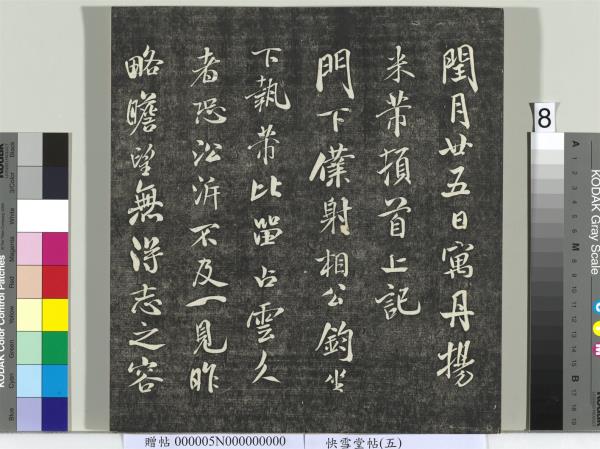 閏月廿五日寓丹揚
米芾頓首上記
門下僕射相公鈞坐
下執芾比留占雲久
者恐沿泝不及一見昨
略瞻望無得志之容
8
KODAK Gray Scale
A 1 2 3 4 5 6 M 8 9 10 11 12 13 14 15 B 17 18 19
C Y M
KODAK Color Control Patches
Blue Cyan Green Yellow Red Magenta White 3/Color Black
贈帖 000005N000000000
快雪堂帖(五)